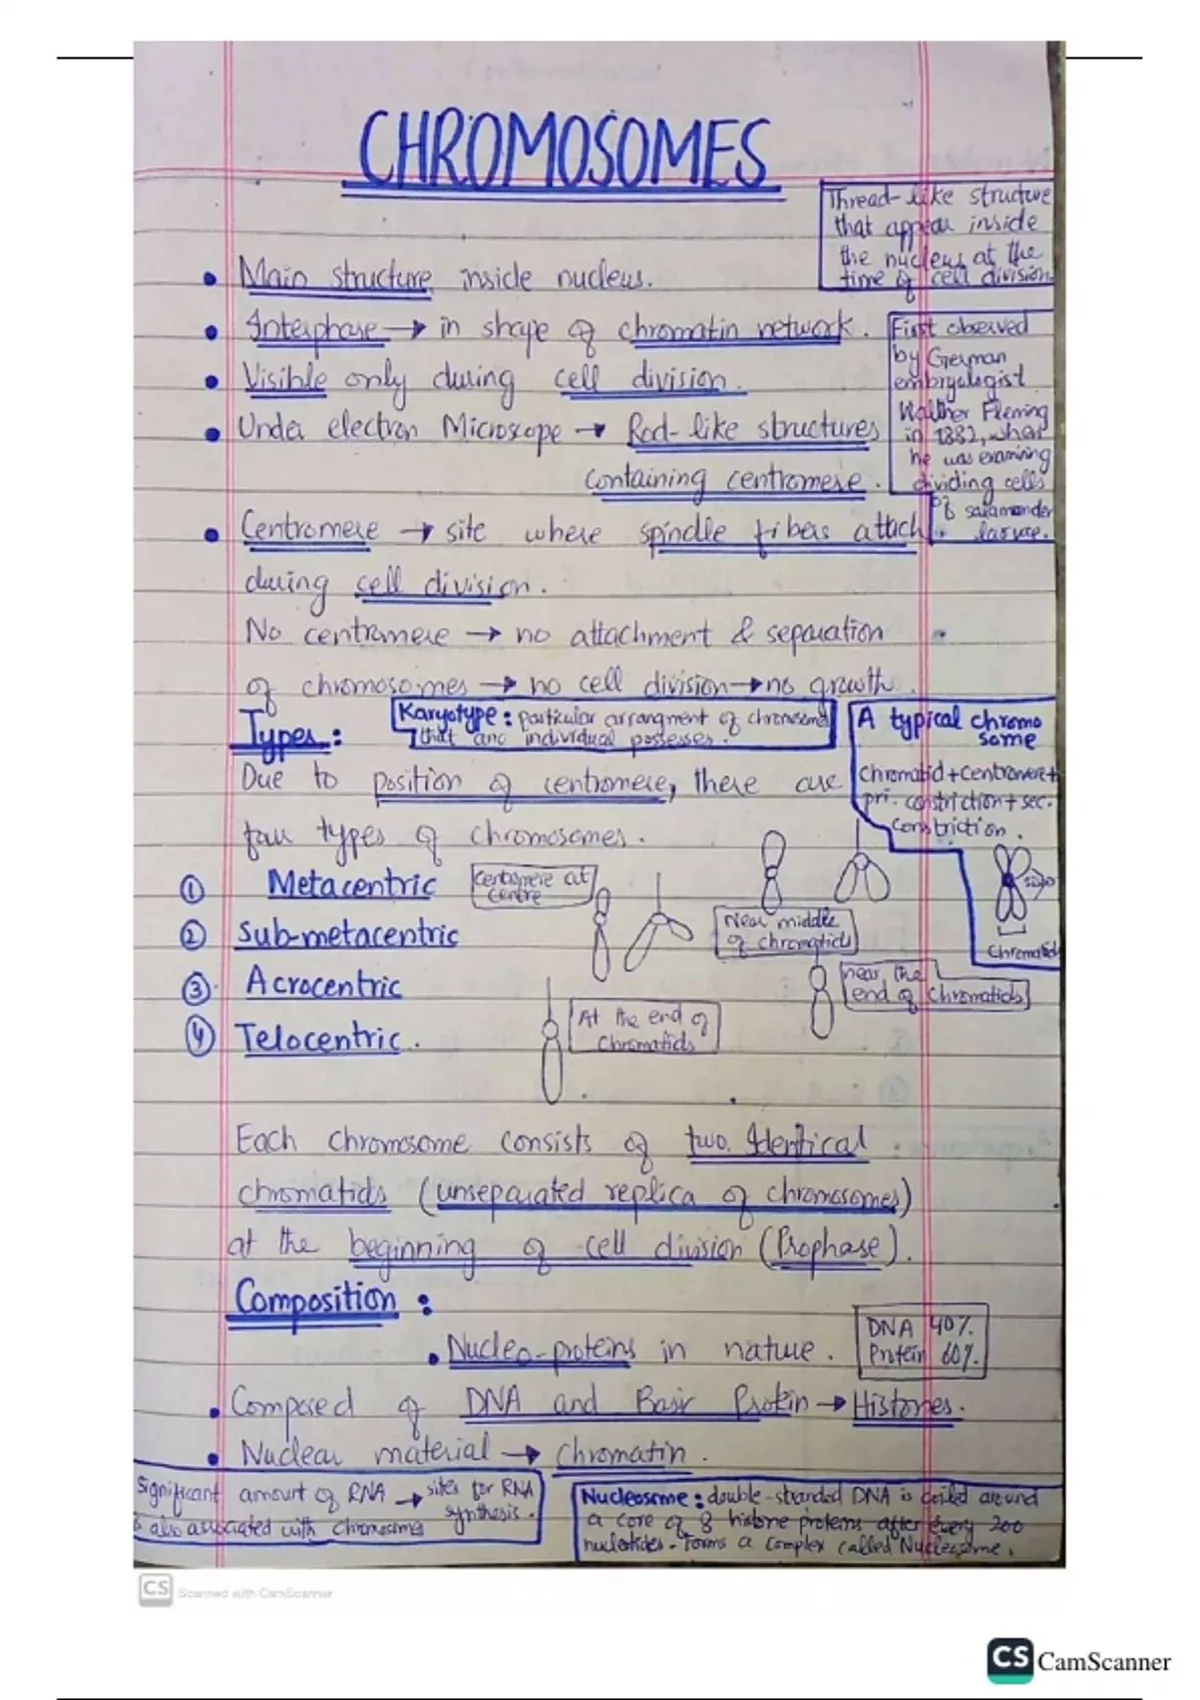 CHROMOSOMES
Thread-like structure
that appear inside
the nucleus at the
time of cell division
• Main structure inside nucleus.
• Interphase → in shape of chromatin network.
• Visible only during cell division.
• Under electron Microscope → Rod-like structures
containing centromere.
First observed
by German
embryologist
Walther Fleming
in 1882, when
he was examining
dividing cells
of salamander
larvae.
• Centromere → site where spindle fibers attach
during cell division.
No centromere → no attachment & separation
of chromosomes → no cell division → no growth.
Types:
Karyotype: particular arrangment of chromosome
that and individual possesses.
A typical chromo
some
Chromatid + Centromere +
pri. constriction + sec.
constriction.
Chromatids
Due to position of centromere, there are
four types of chromosomes.
① Metacentric
centromere at
centre
② Sub-metacentric
Near middle
of chromatids
③ Acrocentric
near the
end of chromatids
④ Telocentric.
At the end of
chromatids
Each chromosome consists of two Identical
chromatids (unseparated replica of chromosomes)
at the beginning of cell division (Prophase).
Composition:
• Nucleo-proteins in nature.
DNA 40%
Protein 60%.
• Composed of DNA and Basic Protein → Histones.
• Nuclear material → Chromatin.
Significant amount of RNA → sites for RNA
is also associated with chromosome synthesis.
Nucleosome: double-stranded DNA is coiled around
a core of 8 histone proteins after every 200
nucleotides. Forms a complex called Nucleosome.
CS Scanned with CamScanner
CS CamScanner